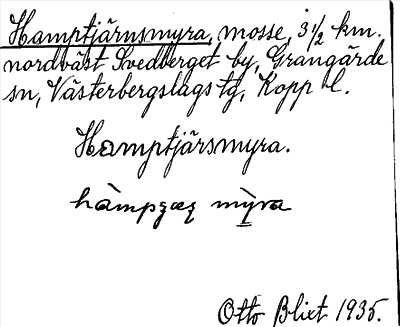 Hamptjärnsmyra, mosse, 3½ km.
nordväst Svedberget by, Grangärde
sn, Västerbergslags tg, Kopp l.
Hamptjärsmyra.
Otto Blixt 1935.